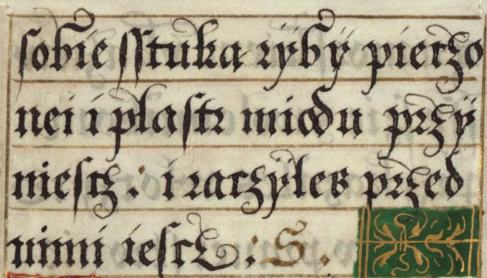 ſobie ſſtuka rÿbÿ pieczo
nei i plaſtr miodu przÿ
nieſcz: i raczÿles przed
nimi ieſcz: S.